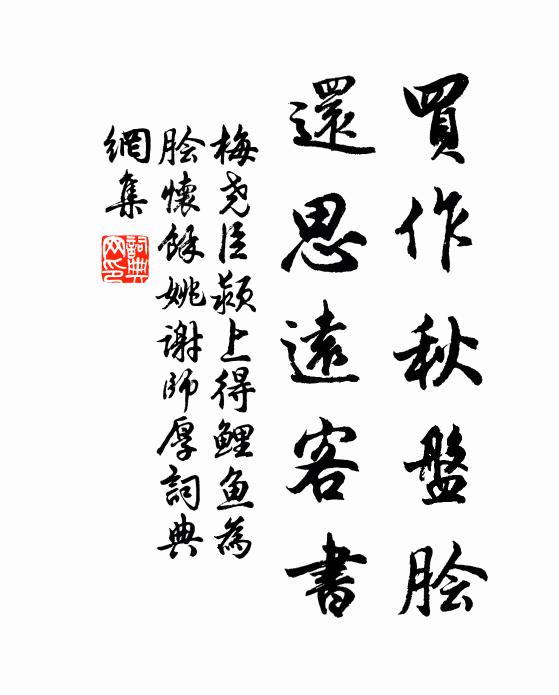 買作秋盤膾
還思遠客書
梅尧臣颍上得鯉鱼為
膾懷餘姚謝師厚詞典
網集
詞典網印